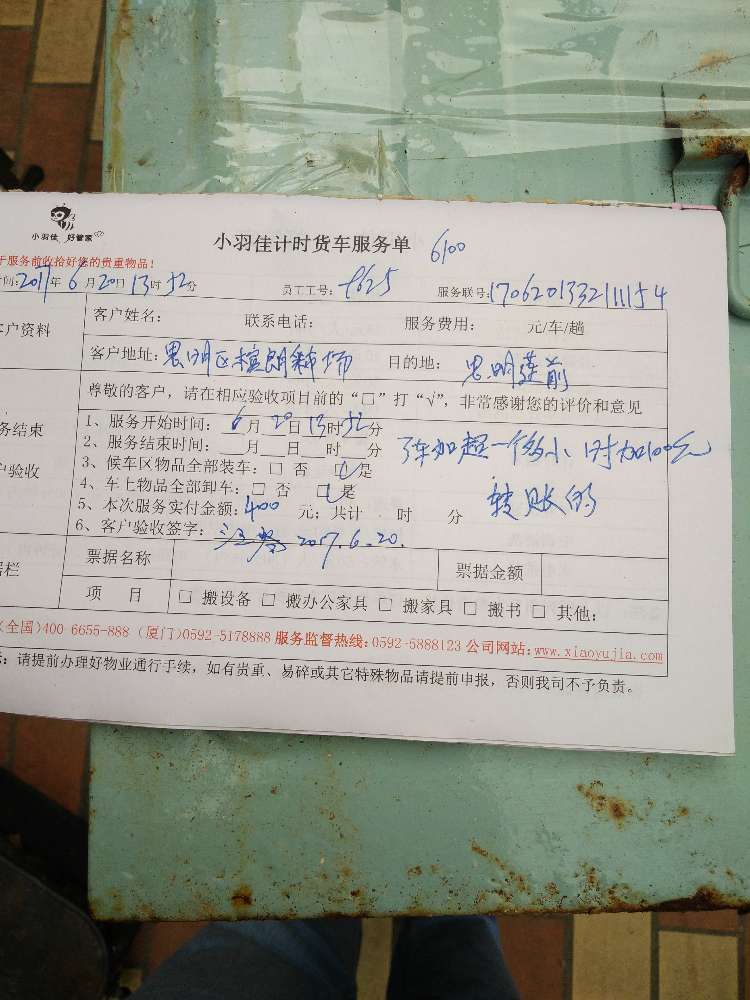 小羽佳 好管家
小羽佳计时货车服务单 6100
于服务前收拾好您的贵重物品!
间:2017年6月20日13时52分 员工工号: 9625 服务联号:170620133211154
客户资料
客户姓名: 联系电话: 服务费用: 元/车/趟
客户地址:思明区 目的地: 思明莲前
尊敬的客户,请在相应验收项目前的“□”打“√”,非常感谢您的评价和意见
务结束
户验收
1、服务开始时间: 6月20日13时52分
2、服务结束时间: 月 日 时 分
3、候车区物品全部装车: □ 否 □ 是
4、车上物品全部卸车: □ 否 □ 是
5、本次服务实付金额: 400 元; 共计 时 分
6、客户验收签字: 2017.6.20.
车加超一个多小时加100元
转账的
据栏
票据名称 票据金额
项 目 □ 搬设备 □ 搬办公家具 □ 搬家具 □ 搬书 □ 其他:
(全国)400-6655-888 (厦门)0592-5178888 服务监督热线:0592-5888123 公司网站:www.xiaoyujia.com
:请提前办理好物业通行手续,如有贵重、易碎或其它特殊物品请提前申报,否则我司不予负责。